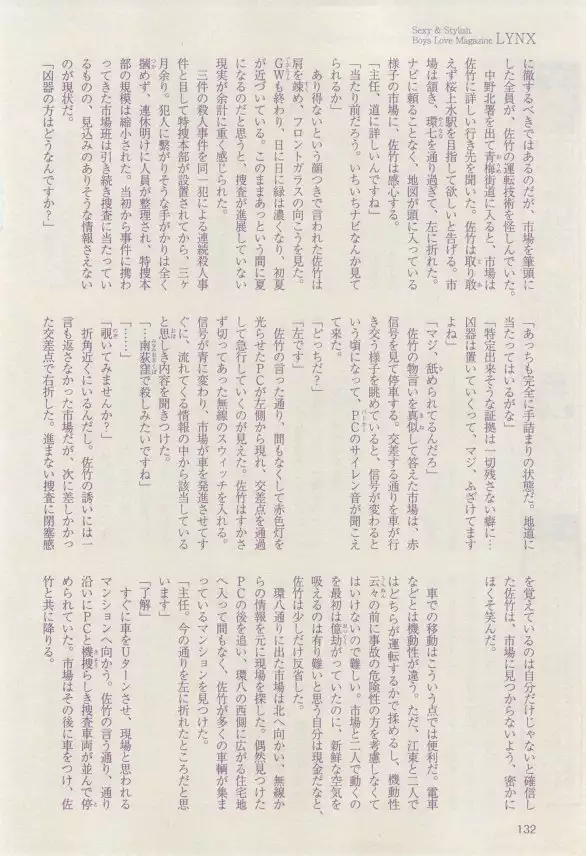 Sexy & Stylish
Boys Love Magazine LYNX
に徹するべきではあるのだが、市場を筆頭に
した全員が、佐竹の運転技術を怪しんでいた。
中野北署を出て青梅街道に入ると、市場は
佐竹に詳しい行き先を聞いた。佐竹は取り敢
えず桜上水駅を目指して欲しいと告げる。市
場は頷き、環七を通り過ぎて、左に折れた。
ナビに頼ることなく、地図が頭に入っている
様子の市場に、佐竹は感心する。
「主任、道に詳しいんですね」
「当たり前だろう。いちいちナビなんか見て
られるか」
あり得ないという顔つきで言われた佐竹は
肩を竦め、フロントガラスの向こうを見た。
GWも終わり、日に日に緑は濃くなり、初夏
が近づいている。このままあっという間に夏
になるのだと思うと、捜査が進展していない
現実が余計に重く感じられた。
三件の殺人事件を同一犯による連続殺人事
件と目して特捜本部が設置されてから、三ヶ
月余り。犯人に繋がりそうな手がかりは全く
摑めず、連休明けに人員が整理され、特捜本
部の規模は縮小された。当初から事件に携わ
ってきた市場班は引き続き捜査に当たってい
るものの、見込みのありそうな情報さえない
のが現状だ。
「凶器の方はどうなんですか？」
「あっちも完全に手詰まりの状態だ。地道に
当たってはいるがな」
「特定出来そうな証拠は一切残さない癖に…
凶器は置いていくって、マジ、ふざけてます
よね」
「マジ、舐められてるんだろ」
佐竹の物言いを真似して答えた市場は、赤
信号を見て停車する。交差する通りを車が行
き交う様子を眺めていると、信号が変わると
いう頃になって、PCのサイレン音が聞こえ
て来た。
「どっちだ？」
「左です」
佐竹の言った通り、間もなくして赤色灯を
光らせたPCが左側から現れ、交差点を通過
して急行していくのが見えた。佐竹はすかさ
ず切ってあった無線のスウィッチを入れる。
信号が青に変わり、市場が車を発進させてす
ぐに、流れてくる情報の中から該当している
と思しき内容を聞きつけた。
「…南荻窪で殺しみたいですね」
「……」
「覗いてみませんか？」
折角近くにいるんだし。佐竹の誘いには一
言も返さなかった市場だが、次に差しかかっ
た交差点で右折した。進まない捜査に閉塞感
を覚えているのは自分だけじゃないと確信し
た佐竹は、市場に見つからないよう、密かに
ほくそ笑んだ。
車での移動はこういう点では便利だ。電車
などとは機動性が違う。ただ、江東と二人で
はどちらが運転するかで揉めるし、機動性
云々の前に事故の危険性の方を考慮しなくて
はいけないので難しい。市場と二人で動くの
を最初は億劫がっていたのに、新鮮な空気を
吸えるのは有り難いと思う自分は現金だなと、
佐竹は少しだけ反省した。
環八通りに出た市場は北へ向かい、無線か
らの情報を元に現場を探した。偶然見つけた
PCの後を追い、環八の西側に広がる住宅地
へ入って間もなく、佐竹が多くの車輌が集ま
っているマンションを見つけた。
「主任。今の通りを左に折れたところだと思
います」
「了解」
すぐに車をUターンさせ、現場と思われる
マンションへ向かう。佐竹の言う通り、通り
沿いにPCと機捜らしき捜査車両が並んで停
められていた。市場はその後に車をつけ、佐
竹と共に降りる。
132